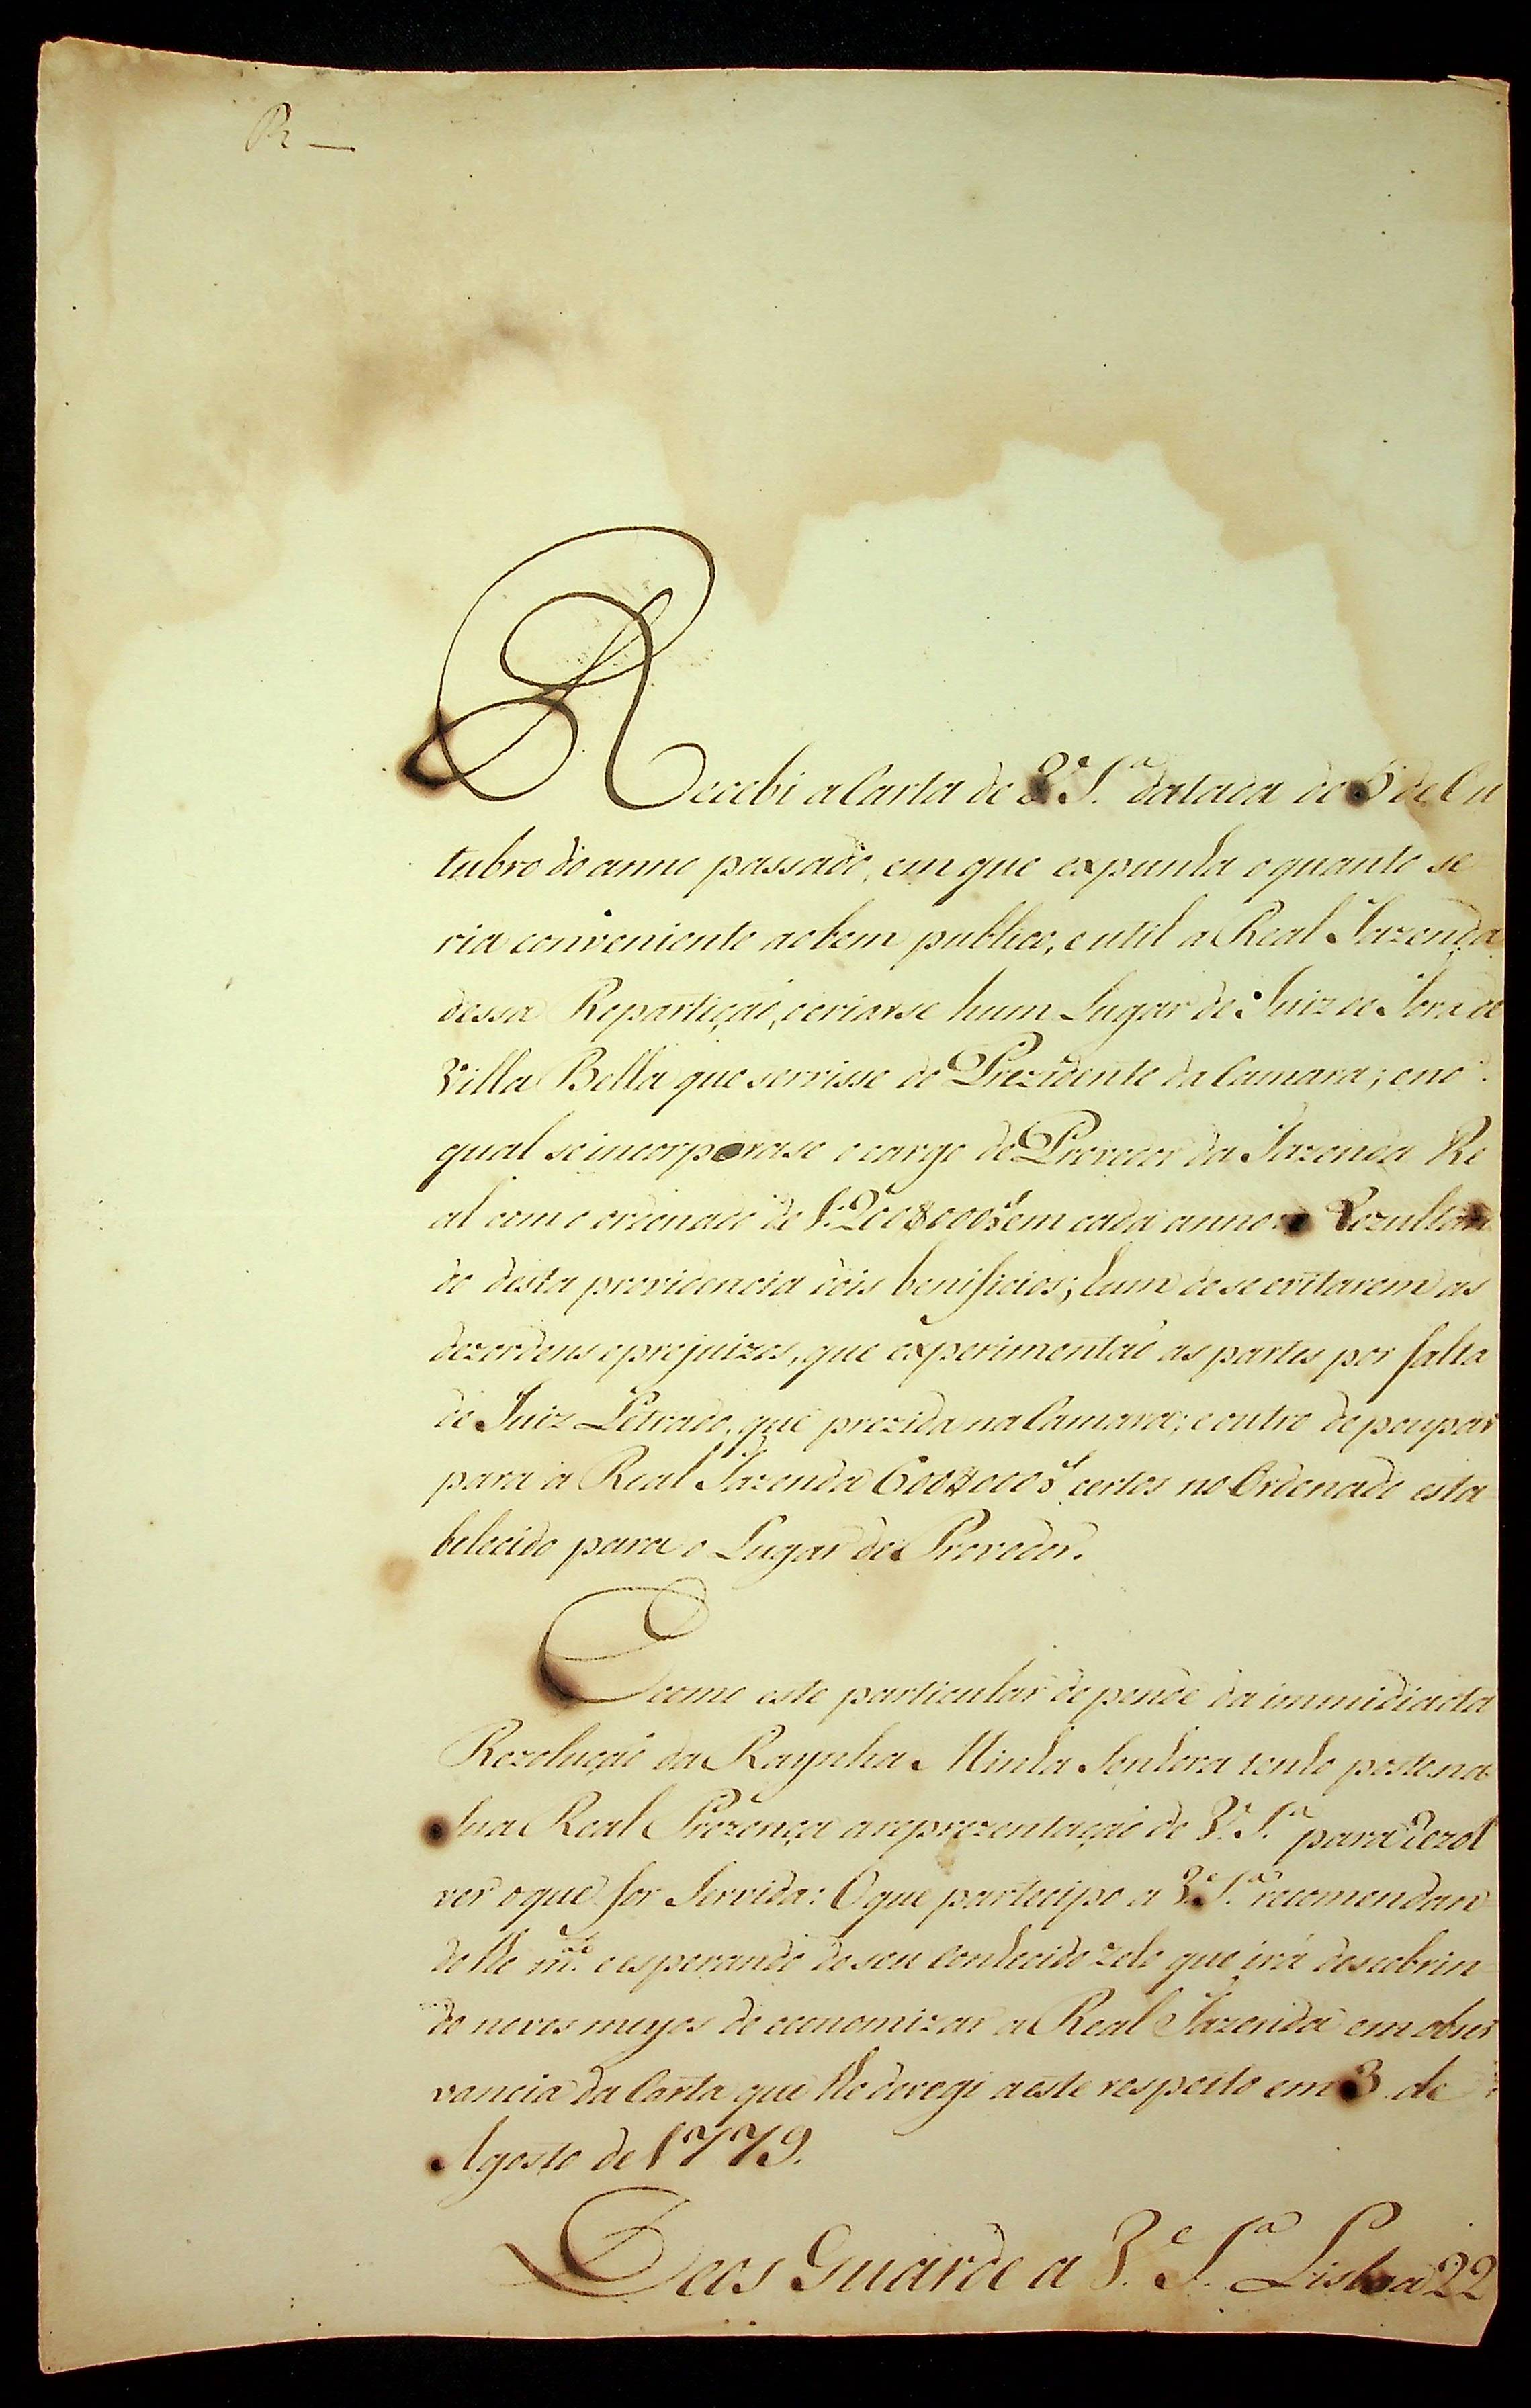 R —
Recebi a Carta de V. S.ª datada de 5 de Ou
tubro do anno passado, em que expunha o quanto se
ria conveniente ao bem publico, e util a Real Fazenda
dessa Repartição, o criarse hum Lugar de Juiz de Fora de
Villa Bella que servisse de Prezidente da Camara; e no
qual se incorporase o cargo de Provedor da Fazenda Re
al com o ordenado de 1:200$000 rs em cada anno: Rezultan
do desta providencia dois benificios; hum de se evitarem as
dezordens e prejuizos, que experimentão as partes por falta
de Juiz Letrado, que prezida na Camara; e outro de poupar
para a Real Fazenda 600$000 rs certos no Ordenado esta
belecido para o Lugar de Provedor.
E como este particular depende da immidiacta
Rezolução da Raynha Minha Senhora tenho posto na
Sua Real Prezença a reprezentação de V. S.ª para rezol
ver o que for Servida: O que partecipo a V. S.ª recomendan
dolhe m.to e esperando do seu conhecido zelo que irá descobrin
do novos meyos de economizar a Real Fazenda em obser
vancia da Carta que lhe deregi a este respeito em 3 de
Agosto de 1779.
Deos Guarde a V. S.ª Lisboa 22